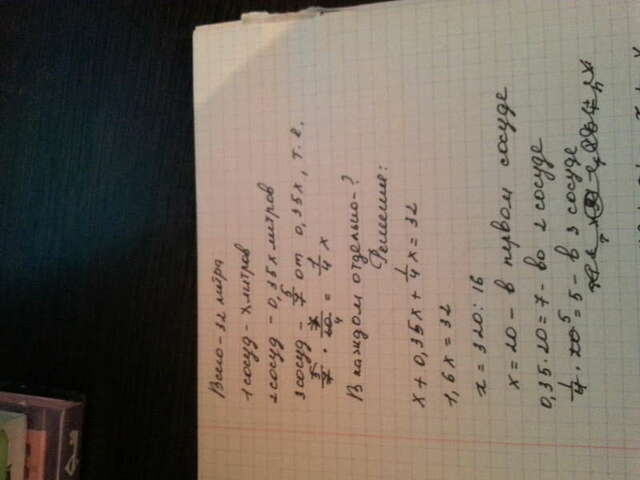 Всего - 32 литра
1 сосуд - x литров
2 сосуд - 0,35x литров
3 сосуд - 5/7 от 0,35x, т.е.
5/7 · 7/20 4 = 1/4 x
В каждом отдельно - ?
Решение:
x + 0,35x + 1/4 x = 32
1,6x = 32
x = 320 : 16
x = 20 - в первом сосуде
0,35 · 20 = 7 - во 2 сосуде
1/4 · 20 5 = 5 - в 3 сосуде